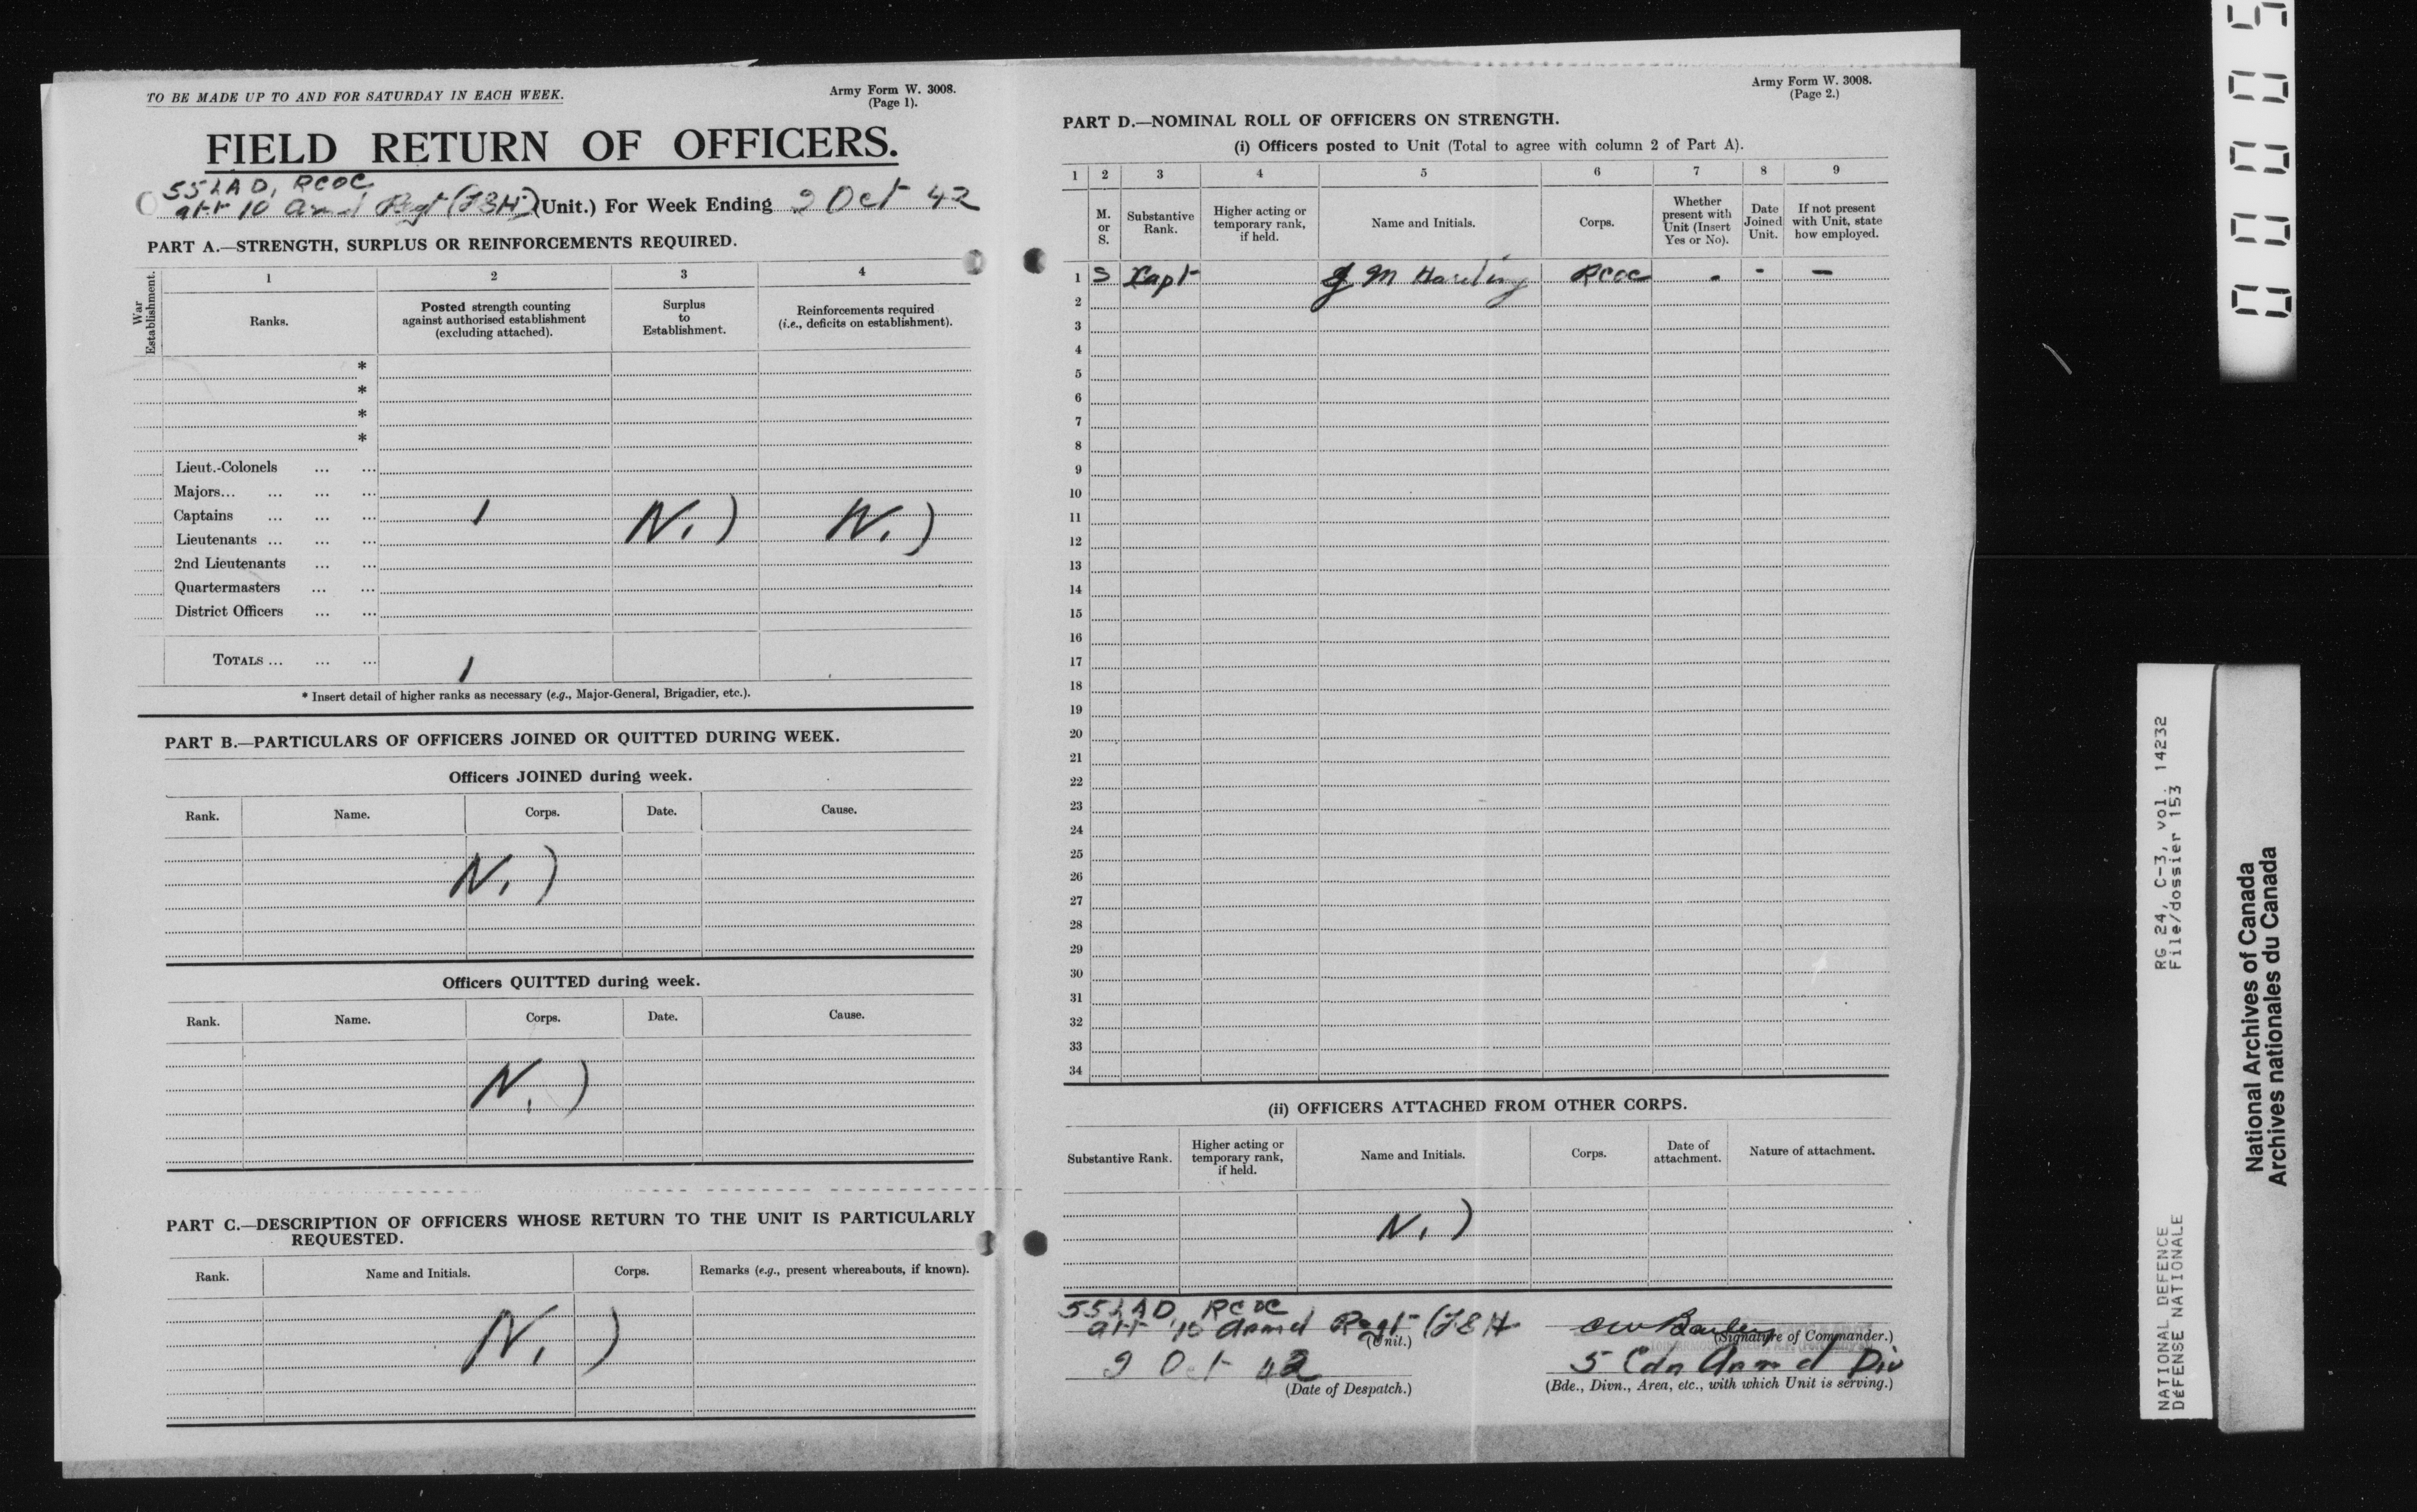 TO BE MADE UP TO AND FOR SATURDAY IN EACH WEEK.
Army Form W. 3008.
(Page 1).
FIELD RETURN OF OFFICERS.
55 LAD, RCOC
att 10 Armd Regt (FGH) (Unit.) For Week Ending Oct 42
PART A.—STRENGTH, SURPLUS OR REINFORCEMENTS REQUIRED.
War Establishment.
1 2 3 4
Ranks.
Posted strength counting against authorised establishment (excluding attached).
Surplus to Establishment.
Reinforcements required (i.e., deficits on establishment).
*
*
*
*
Lieut.-Colonels ... ...
Majors... ... ... ...
Captains ... ... ... 1 Nil Nil
Lieutenants ... ... ...
2nd Lieutenants ... ...
Quartermasters ... ...
District Officers ... ...
TOTALS ... ... ... 1
* Insert detail of higher ranks as necessary (e.g., Major-General, Brigadier, etc.).
PART B.—PARTICULARS OF OFFICERS JOINED OR QUITTED DURING WEEK.
Officers JOINED during week.
Rank. Name. Corps. Date. Cause.
Nil
Officers QUITTED during week.
Rank. Name. Corps. Date. Cause.
Nil
PART C.—DESCRIPTION OF OFFICERS WHOSE RETURN TO THE UNIT IS PARTICULARLY
REQUESTED.
Rank. Name and Initials. Corps. Remarks (e.g., present whereabouts, if known).
Nil
Army Form W. 3008.
(Page 2.)
PART D.—NOMINAL ROLL OF OFFICERS ON STRENGTH.
(i) Officers posted to Unit (Total to agree with column 2 of Part A).
1 2 3 4 5 6 7 8 9
M. or S.
Substantive Rank.
Higher acting or temporary rank, if held.
Name and Initials.
Corps.
Whether present with Unit (Insert Yes or No).
Date Joined Unit.
If not present with Unit, state how employed.
1 S Capt J M Harding RCOC - - -
2
3
4
5
6
7
8
9
10
11
12
13
14
15
16
17
18
19
20
21
22
23
24
25
26
27
28
29
30
31
32
33
34
(ii) OFFICERS ATTACHED FROM OTHER CORPS.
Substantive Rank.
Higher acting or temporary rank, if held.
Name and Initials.
Corps.
Date of attachment.
Nature of attachment.
Nil
55 LAD RCOC
att 10 Armd Regt (FGH
(Unit.)
(Signature of Commander.)
Oct 42
(Date of Despatch.)
5 Cdn Armd Div
(Bde., Divn., Area, etc., with which Unit is serving.)
NATIONAL DEFENCE RG 24, C-3, vol. 14232
DéFENSE NATIONALE File/dossier 153
National Archives of Canada
Archives nationales du Canada